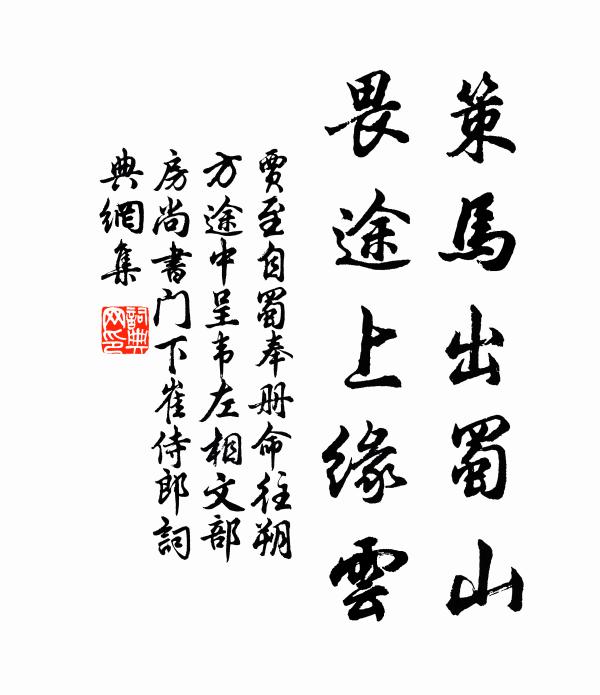 策馬出蜀山
畏途上緣雲
賈至自蜀奉册命往朔
方途中呈韦左相文部
房尚書门下崔侍郎詞
典網集
詞典网印